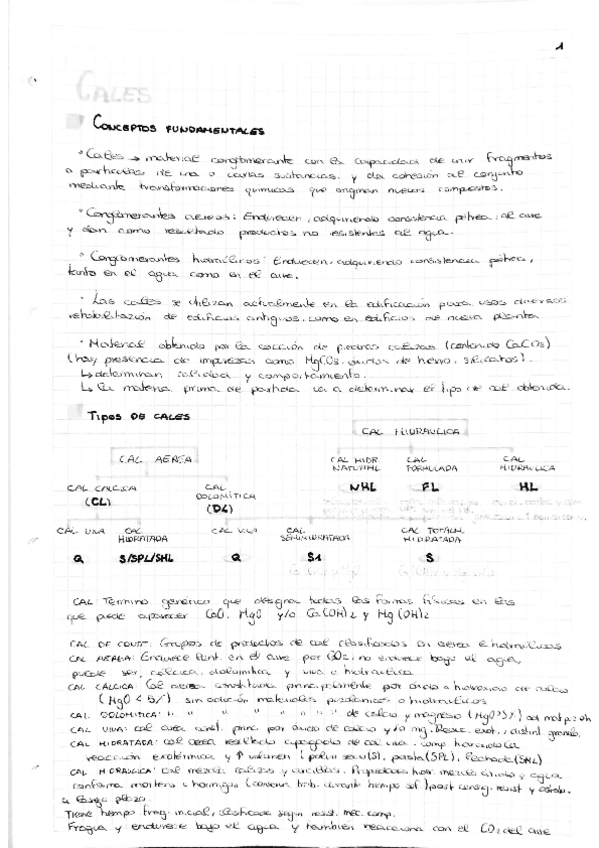 1
CALES
CONCEPTOS FUNDAMENTALES
• Cales → material conglomerante con la capacidad de unir fragmentos
o partículas de una o varias sustancias, y da cohesión al conjunto
mediante transformaciones químicas que originan nuevos compuestos.
• Conglomerantes aéreos: Endurecen, adquiriendo consistencia pétrea, al aire
y dan como resultado productos no resistentes al agua.
• Conglomerantes hidráulicos: Endurecen, adquiriendo consistencia pétrea,
tanto en el agua como en el aire.
• Las cales se utilizan actualmente en la edificación para usos diversos
rehabilitación de edificios antiguos, como en edificios de nueva planta
• Material obtenido por la cocción de piedras calizas (contenido CaCO3)
(hay presencia de impurezas como MgCO3, óxidos de hierro, silicatos).
↳ determinan calidad y comportamiento.
↳ La materia prima de partida va a determinar el tipo de cal obtenida.
TIPOS DE CALES
CAL HIDRAULICA
CAL AEREA
CAL HIDR. NATURAL
CAL FORMULADA
CAL HIDRAULICA
NHL FL HL
CAL CALCICA (CL)
CAL DOLOMÍTICA (DL)
CAL VIVA
CAL HIDRATADA
CAL VIVA
CAL SEMIHIDRATADA
CAL TOTALM. HIDRATADA
Q S/SPL/SHL Q S1 S
CAL Término genérico que designa todas las formas físicas en las
que puede aparecer CaO, MgO y/o Ca(OH)2 y Mg(OH)2
CAL DE CONST: Grupos de productos de cal clasificados en aérea e hidráulicas
CAL AEREA: Endurece en el aire por CO2, no endurece bajo el agua,
puede ser, cálcica, dolomítica y viva o hidratada
CAL CALCICA: Cal aérea constituida principalmente por óxido o hidróxido de calcio
(MgO < 5%) sin adición materiales puzolánicos o hidráulicos
CAL DOLOMITICA: " " " " " " de calcio y magnesio
CAL VIVA: cal aérea const. princ. por óxido de calcio y/o mg.
CAL HIDRATADA: cal aérea resultado apagado de cal viva.
reacción exotérmica y ↑ volumen (polvo seco (S), pasta (SPL), lechada (SHL)
CAL HIDRAULICA: cal mezcla calizas y arcillas. y agua
conforma mortero u hormigón
a largo plazo.
Tiene tiempo frag. inicial, clasificada según resist. mec. comp.
Fragua y endurece bajo el agua y también reacciona con el CO2 del aire